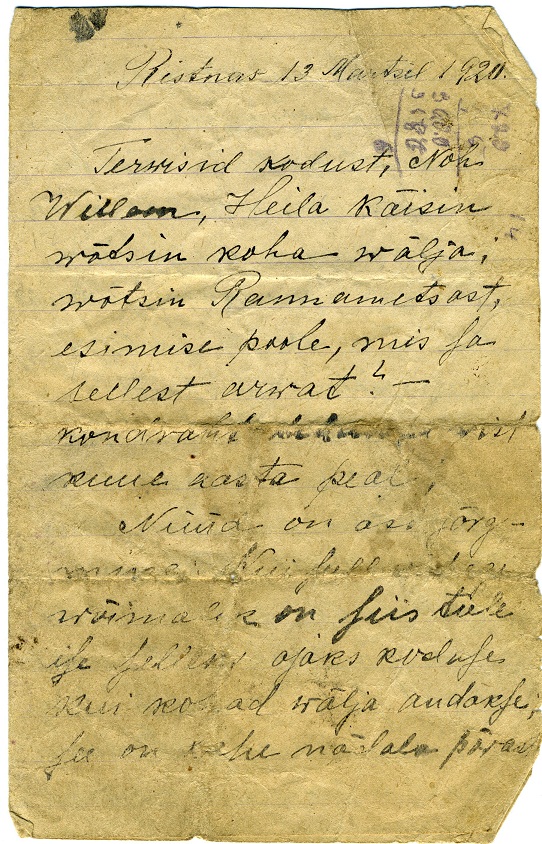 Ristnas 13 Märtsil 1920.
Terwisid kodust, Noh
Willem, Heila käisin
wõtsin koha wälja,
wõtsin Rannametsast,
esimise poole, mis sa
sellest arwat? —
kondraht
kuue aasta peal,
Nüüd on asi järg-
mine: Kui sull
wõimalik on siis tule
ise selleks ajaks koduse
kui kohad wälja andakse,
see on kahe nädala päras